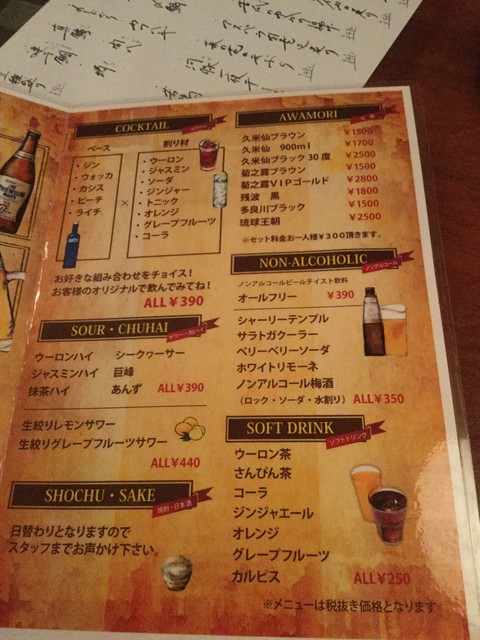 COCKTAIL
カクテル
ベース
割り材
・ジン
・ウォッカ
・カシス
・ピーチ
・ライチ
×
・ウーロン
・ジャスミン
・ソーダ
・ジンジャー
・トニック
・オレンジ
・グレープフルーツ
・コーラ
お好きな組み合わせをチョイス！
お客様のオリジナルで飲んでみてね！
ALL￥390
SOUR・CHUHAI
サワー・酎ハイ
ウーロンハイ シークヮーサー
ジャスミンハイ 巨峰
抹茶ハイ あんず ALL￥390
生絞りレモンサワー
生絞りグレープフルーツサワー
ALL￥440
SHOCHU・SAKE
焼酎・日本酒
日替わりとなりますので
スタッフまでお声かけ下さい。
AWAMORI
泡盛
久米仙ブラウン ￥1500
久米仙 900ml ￥1700
久米仙ブラック30度 ￥2500
菊之露ブラウン ￥1500
菊之露VIPゴールド ￥2800
残波 黒 ￥1800
多良川ブラック ￥1500
琉球王朝 ￥2500
※セット料金お一人様￥300頂きます。
NON-ALCOHOLIC
ノンアルコール
ノンアルコールビールテイスト飲料
オールフリー ￥390
シャーリーテンプル
サラトガクーラー
ベリーベリーソーダ
ホワイトリモーネ
ノンアルコール梅酒
（ロック・ソーダ・水割り） ALL￥350
SOFT DRINK
ソフトドリンク
ウーロン茶
さんぴん茶
コーラ
ジンジャエール
オレンジ
グレープフルーツ
カルピス ALL￥250
※メニューは税抜き価格となります